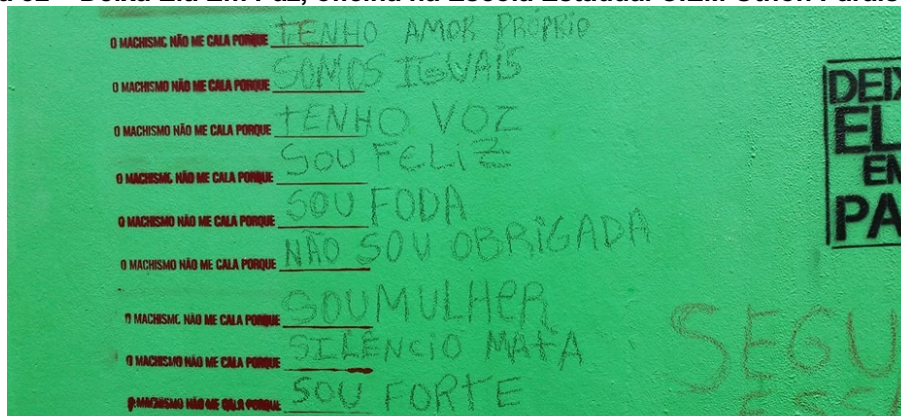 Deixa Ela Em Paz, oficina na Escola Estadual
O MACHISMO NÃO ME CALA PORQUE tENHO AMOR PROPRIO
O MACHISMO NÃO ME CALA PORQUE SOMOS IGUAIS
O MACHISMO NÃO ME CALA PORQUE tENHO VOZ
O MACHISMO NÃO ME CALA PORQUE SOU FELIZ
O MACHISMO NÃO ME CALA PORQUE SOU FODA
O MACHISMO NÃO ME CALA PORQUE NÃO SOU OBRIGADA
O MACHISMO NÃO ME CALA PORQUE SOU MULHER
O MACHISMO NÃO ME CALA PORQUE SILÊNCIO MAtA
O MACHISMO NÃO ME CALA PORQUE SOU FORTE
DEIX
EL
EM
PA
SEGU